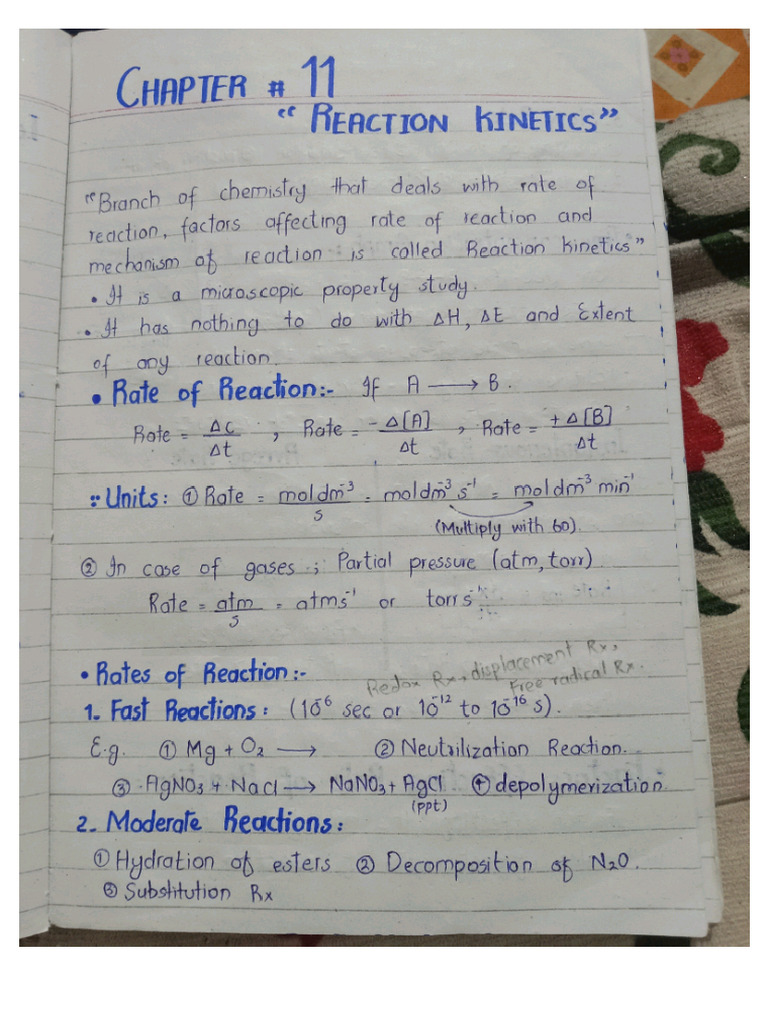 CHAPTER # 11
"REACTION KINETICS"
"Branch of chemistry that deals with rate of
reaction, factors affecting rate of reaction and
mechanism of reaction is called Reaction Kinetics"
• It is a microscopic property study.
• It has nothing to do with ΔH, ΔE and Extent
of any reaction.
• Rate of Reaction:- If A ⟶ B.
Rate = Δc/Δt , Rate = -Δ[A]/Δt , Rate = +Δ[B]/Δt
:: Units: ① Rate = moldm⁻³/s = moldm⁻³s⁻¹ = moldm⁻³min⁻¹
(Multiply with 60)
② In case of gases ; Partial pressure (atm, torr)
Rate = atm/s = atms⁻¹ or torrs⁻¹
• Rates of Reaction:-
Redox Rx, displacement Rx,
Free radical Rx.
1. Fast Reactions: (10⁻⁶ sec or 10⁻¹² to 10⁻¹⁶ s).
E.g. ① Mg + O₂ ⟶ ② Neutrilization Reaction.
③ AgNO₃ + NaCl ⟶ NaNO₃ + AgCl ④ depolymerization
(ppt)
2. Moderate Reactions:
① Hydration of esters ② Decomposition of N₂O.
③ Substitution Rx